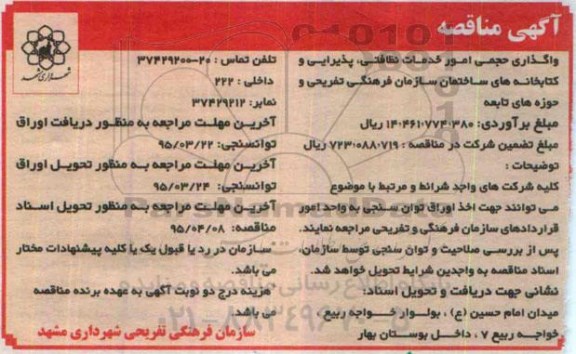 آگهی مناقصه
واگذاری حجمی امور خدمات نظافتی، پذیرایی و
کتابخانه های ساختمان سازمان فرهنگی تفریحی و
حوزه های تابعه
مبلغ برآوردی: ۱۴۰۴۶۱۰۷۷۴۰۳۸۰ ریال
مبلغ تضمین شرکت در مناقصه: ۷۲۳۰۰۸۸۰۷۱۹ ریال
توضیحات:
کلیه شرکت های واجد شرائط و مرتبط با موضوع
می توانند جهت اخذ اوراق توان سنجی به واحد امور
قراردادهای سازمان فرهنگی و تفریحی مراجعه نمایند.
پس از بررسی صلاحیت و توان سنجی توسط سازمان،
اسناد مناقصه به واجدین شرایط تحویل خواهد شد.
نشانی جهت دریافت و تحویل اسناد:
میدان امام حسین (ع)، بولوار خواجه ربیع،
خواجه ربیع ۷، داخل بوستان بهار
تلفن تماس: ۲۰-۳۷۴۲۹۲۰۰
داخلی: ۲۲۲
نمابر: ۳۷۴۲۹۲۱۲
آخرین مهلت مراجعه به منظور دریافت اوراق
توانسنجی: ۹۵/۰۳/۲۲
آخرین مهلت مراجعه به منظور تحویل اوراق
توانسنجی: ۹۵/۰۳/۲۴
آخرین مهلت مراجعه به منظور تحویل اسناد
مناقصه: ۹۵/۰۴/۰۸
سازمان در رد یا قبول یک یا کلیه پیشنهادات مختار
می باشد.
هزینه درج دو نوبت آگهی به عهده برنده مناقصه
می باشد.
سازمان فرهنگی تفریحی شهرداری مشهد